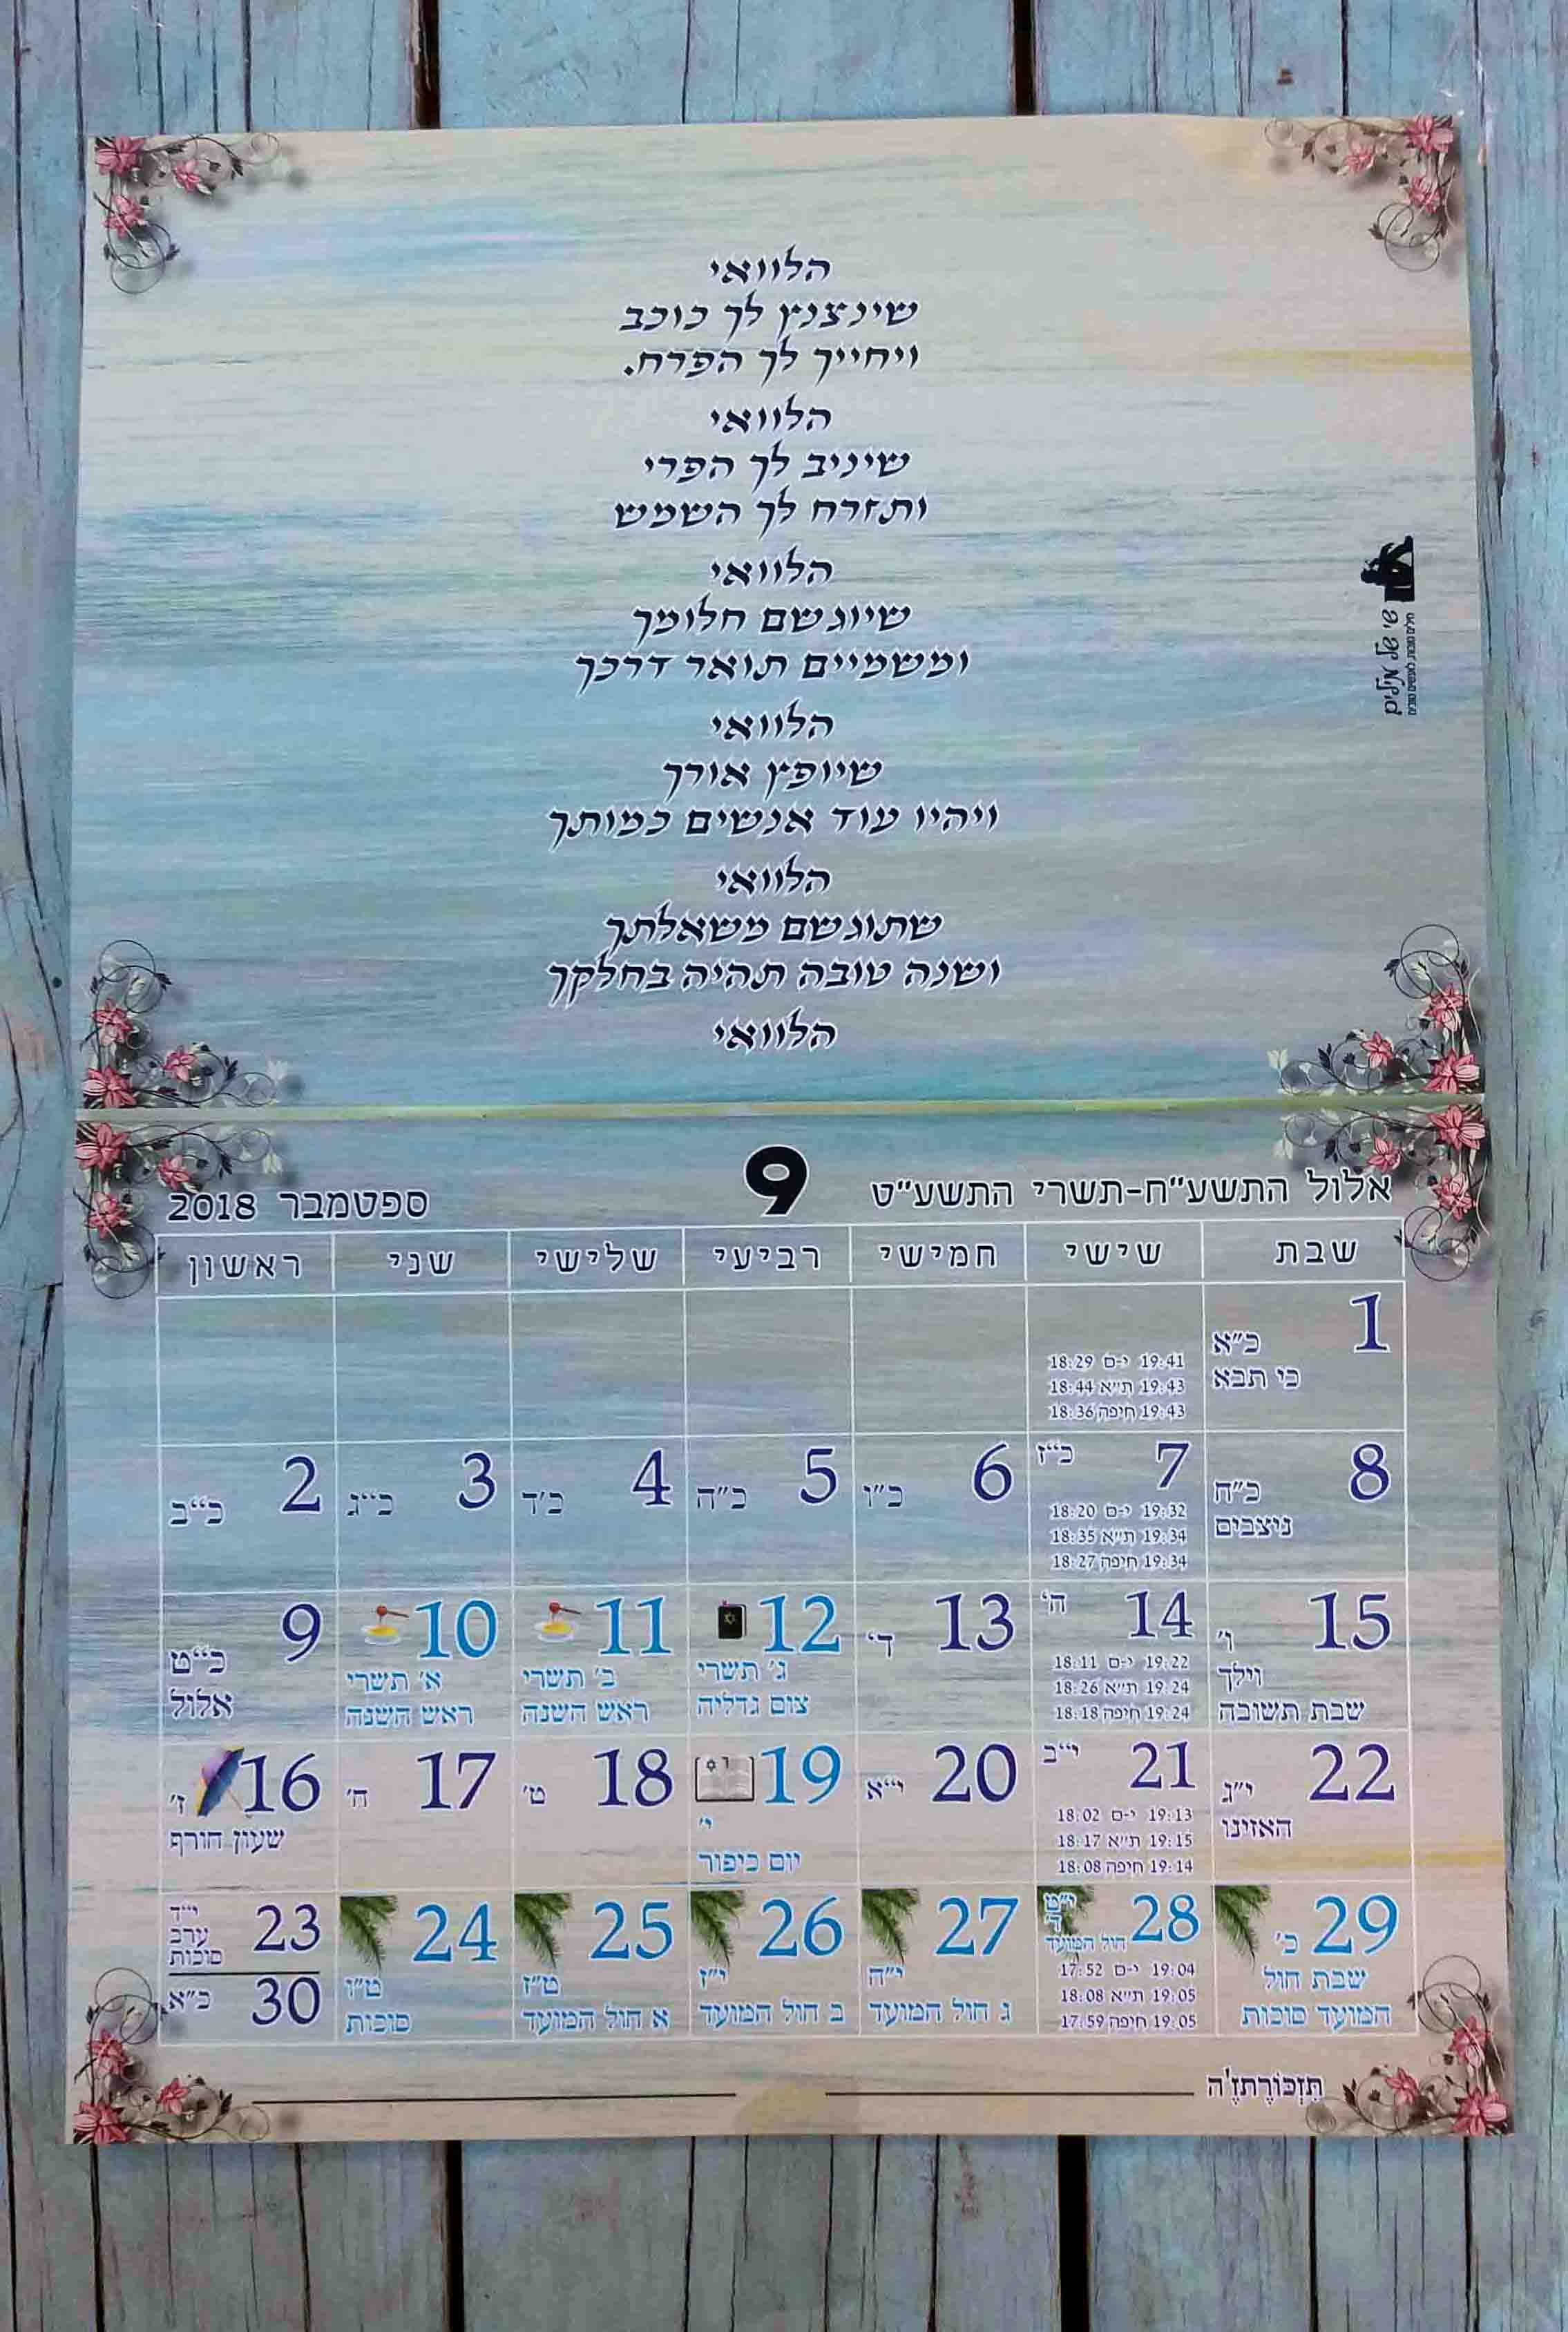 הלוואי
שינצנץ לך כוכב
ויחייך לך הפרח.
הלוואי
שיניב לך הפרי
ותזרח לך השמש
הלוואי
שיוגשם חלומך
ומשמיים תואר דרכך
הלוואי
שיופץ אורך
ויהיו עוד אנשים כמותך
הלוואי
שתוגשם משאלתך
ושנה טובה תהיה בחלקך
הלוואי
שי של מילים
מילים טובות, לאנשים טובים
אלול התשע"ח-תשרי התשע"ט 9 ספטמבר 2018
ראשון שני שלישי רביעי חמישי שישי שבת
18:29 י-ם 19:41
18:44 ת"א 19:43
18:36 חיפה 19:43
1 כ"א
כי תבא
2 כ"ב
3 כ"ג
4 כ'ד
5 כ"ה
6 כ"ו
7 כ"ז
18:20 י-ם 19:32
18:35 ת"א 19:34
18:27 חיפה 19:34
8 כ"ח
ניצבים
9 כ"ט
אלול
10
א' תשרי
ראש השנה
11
ב' תשרי
ראש השנה
12
ג' תשרי
צום גדליה
13 ד'
14 ה'
18:11 י-ם 19:22
18:26 ת"א 19:24
18:18 חיפה 19:24
15 ו'
וילך
שבת תשובה
16 ז'
שעון חורף
17 ח'
18 ט'
19
י'
יום כיפור
20 י"א
21 י"ב
18:02 י-ם 19:13
18:17 ת"א 19:15
18:08 חיפה 19:14
22 י"ג
האזינו
23 י"ד
ערב
סוכות
30 כ"א
24
ט"ו
סוכות
25
ט"ז
א חול המועד
26
י"ז
ב חול המועד
27
י"ח
ג חול המועד
28 י"ט
ד'
חול המועד
17:52 י-ם 19:04
18:08 ת"א 19:05
17:59 חיפה 19:05
29 כ'
שבת חול
המועד סוכות
תִּזְכּוֹרֶתזֶ'ה